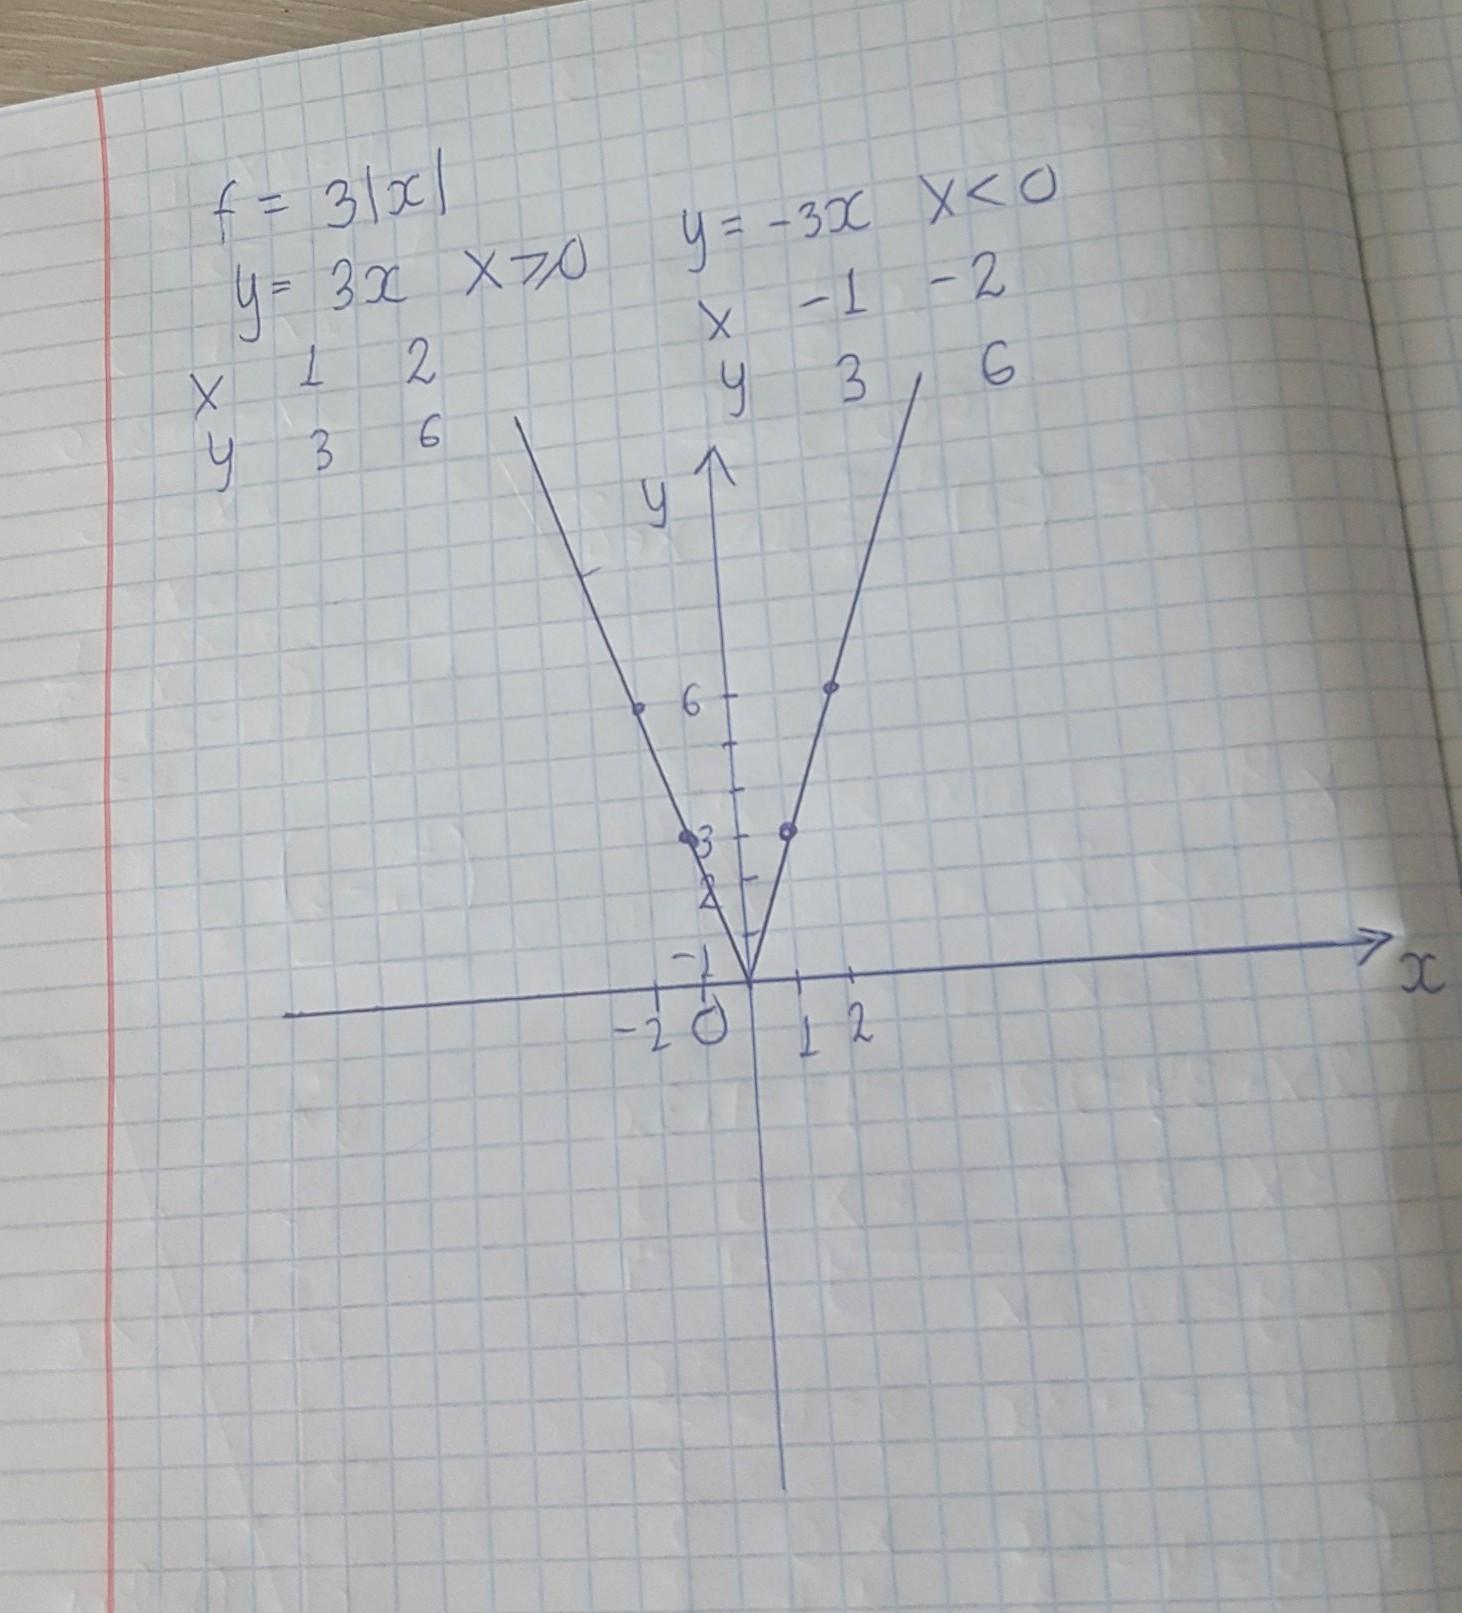 f = 3|x|
y = 3x   x ⩾ 0
x   1   2
y   3   6
y = -3x   x < 0
x   -1   -2
y   3   6
y
6
3
2
-1
-2   0   1   2
x